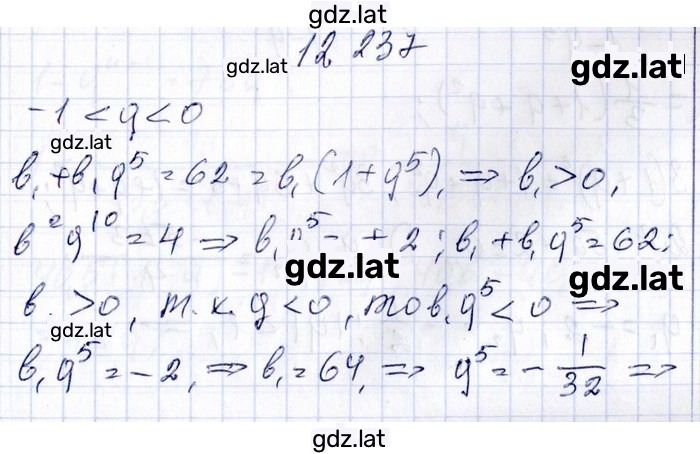 gdz.lat
12 237
gdz.lat
gdz.lat
-1 < q < 0
gdz.lat
b₁ + b₁ q⁵ = 62 = b₁ (1 + q⁵), => b₁ > 0,
b² q¹⁰ = 4 => b₁ ⁵ - ± 2 ; b₁ + b₁ q⁵ = 62;
gdz.lat
gdz.lat
b. > 0, т.к. q < 0, то b₁ q⁵ < 0 =>
gdz.lat
b₁ q⁵ = -2, => b₁ = 64, => q⁵ = - 1/32 =>
gdz.lat